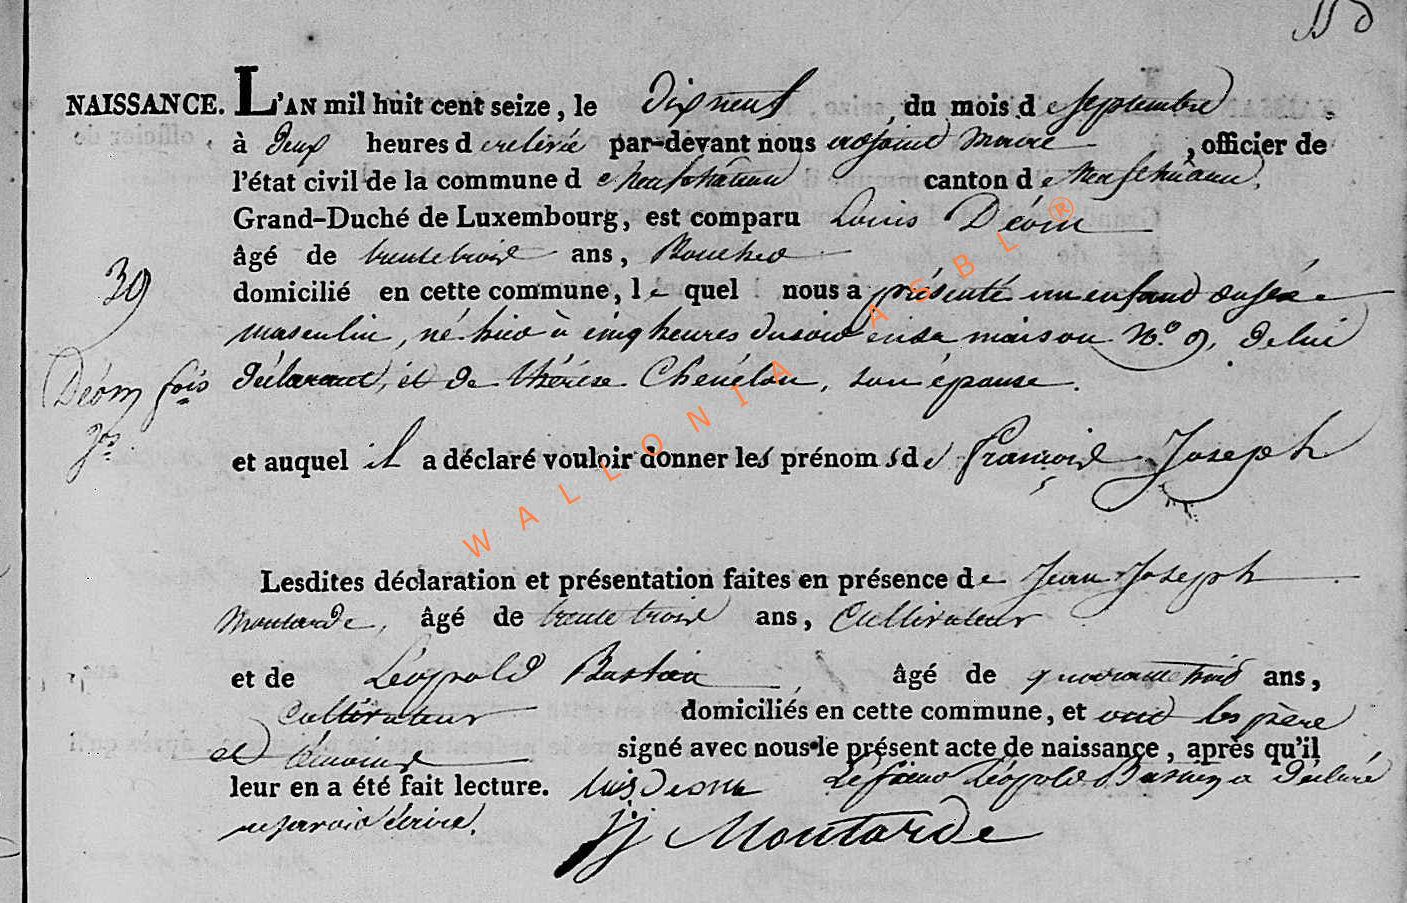 NAISSANCE. L'AN mil huit cent seize, le Dix neuf du mois de Septembre
à Deux heures de relevée par-devant nous adjoint Maire, officier de
l'état civil de la commune de Neufchâteau canton de Neufchâteau,
Grand-Duché de Luxembourg, est comparu Louis Déom
âgé de trente trois ans, Boucher
39
domicilié en cette commune, le quel nous a présenté un enfant du sexe
masculin, né hier à cinq heures du soir en sa maison No. 9, de lui
Déom fois
Jph
déclarant, et de thérèse Chenélou, son épouse.
et auquel il a déclaré vouloir donner les prénoms de François Joseph
Lesdites déclaration et présentation faites en présence de Jean Joseph
Moutarde, âgé de trente trois ans, Cultivateur
et de Léopold Bastin âgé de quarante trois ans,
Cultivateur domiciliés en cette commune, et ont les père
et témoins signé avec nous le présent acte de naissance, après qu'il
leur en a été fait lecture. luis Deom Le sieur Léopold Bastin a déclaré
ne savoir écrire.
jj Moutarde
WALLONIA ASBL ®